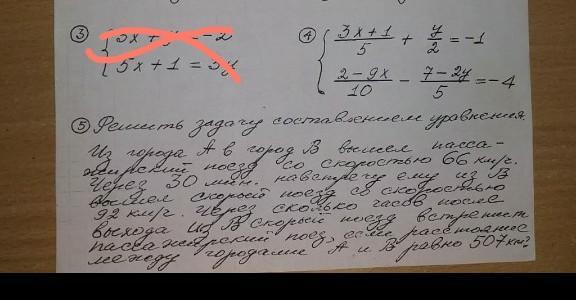 ③ { 5x + y = -2
5x + 1 = 3y
④ { (3x + 1)/5 + y/2 = -1
(2 - 9x)/10 - (7 - 2y)/5 = -4
⑤ Решить задачу составлением уравнения.
Из города А в город В вышел пасса-
жирский поезд со скоростью 66 км/ч.
Через 30 мин. навстречу ему из В
вышел скорый поезд со скоростью
92 км/ч. Через сколько часов после
выхода из В скорый поезд встретит
пассажирский поезд, если расстояние
между городами А и В равно 507 км?